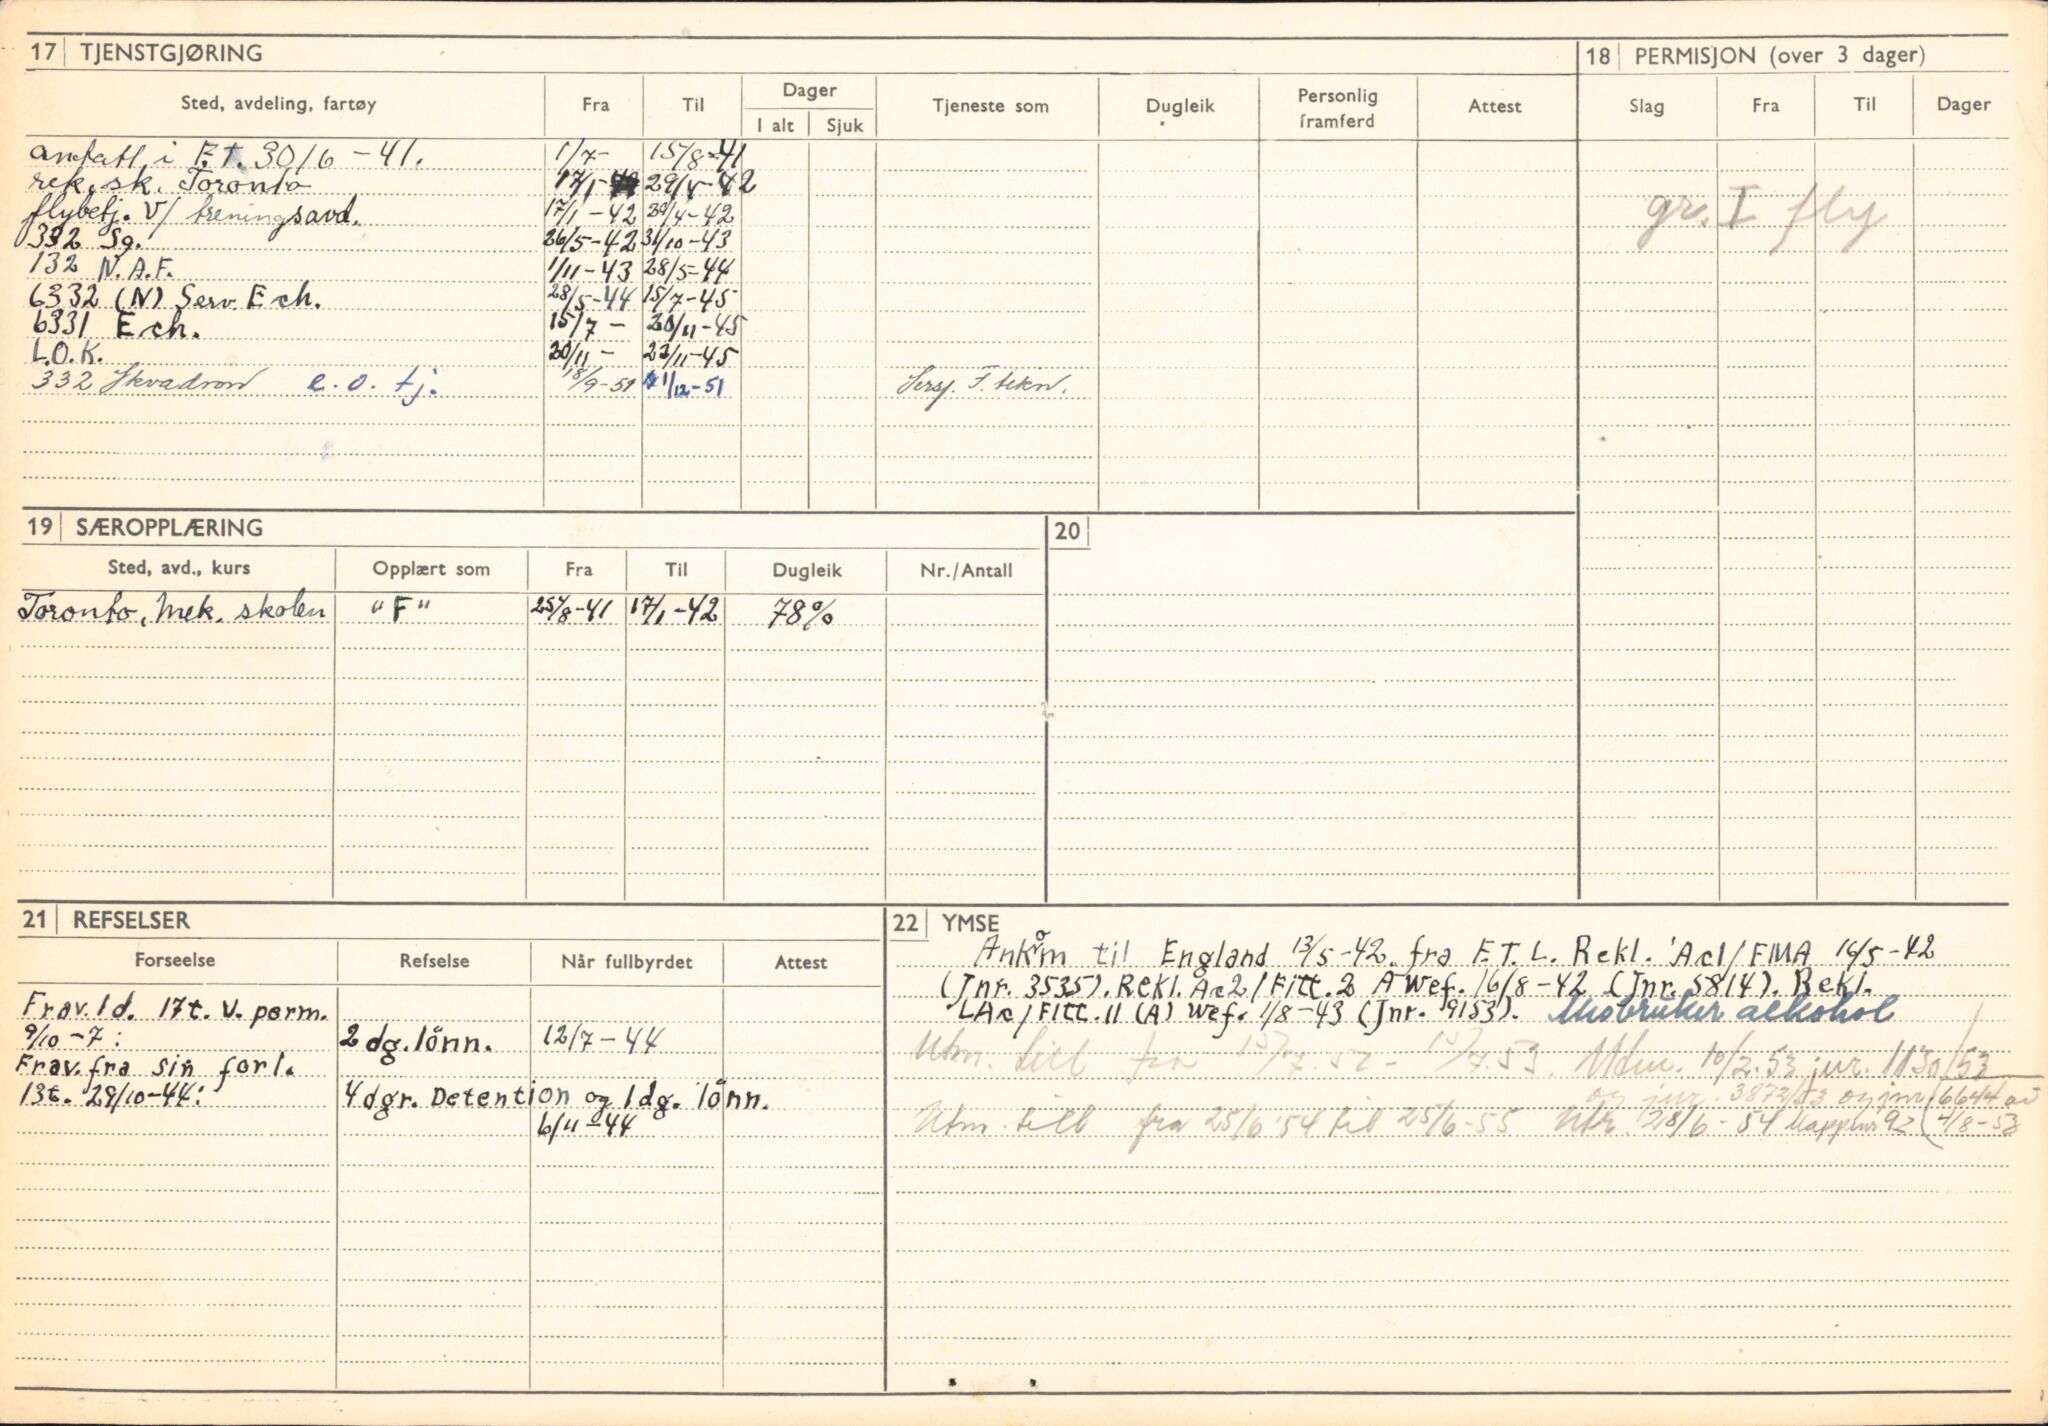 17 TJENSTGJØRING
18 PERMISJON (over 3 dager)
Sted, avdeling, fartøy Fra Til Dager I alt Sjuk Tjeneste som Dugleik Personlig framferd Attest
Slag Fra Til Dager
antatt i F.t. 30/6 -41. 1/7- 15/8-41
rek. sk. Toronto 17/1- 29/4-42
flybetj. v/ treningsavd. 17/1-42 29/4-42
gr. I fly
332 Sq. 26/5-42 31/10-43
132 N.A.F. 1/11-43 28/5-44
6332 (N) Serv. Ech. 28/5-44 15/7-45
6331 Ech. 15/7- 20/11-45
L.O.K. 20/11- 22/11-45
332 Skvadron e.o. tj. 18/9-51 1/12-51 Sersj. F. tekn.
19 SÆROPPLÆRING
20
Sted, avd., kurs Opplært som Fra Til Dugleik Nr./Antall
Toronto, mek. skolen "F" 25/8-41 17/1-42 78%
21 REFSELSER
Forseelse Refselse Når fullbyrdet Attest
Frav. 1d. 17t. u. perm.
9/10-7: 2 dg. lönn. 12/7-44
Frav. fra sin forl.
13t. 29/10-44: 4 dgr. Detention og 1 dg. lönn.
6/11-44
22 YMSE
Ankom til England 13/5-42 fra F.T.L. Rekl. Ac1/FMA 16/5-42
(Jnr. 3535). Rekl. Ac2/Fitt. 2 A wef. 16/8-42 (Jnr. 5814). Rekl.
LAc/Fitt. II (A) wef. 1/8-43 (Jnr. 9153). Misbruker alkohol
Utm. till fra 15/7.52- 15/7.53. 10/2.53 jnr. 1130/53
og jnr. 3872/53 og jnr. 6644 av
Utm. till fra 25/6-54 til 25/6-55 28/6-54 4/8-53